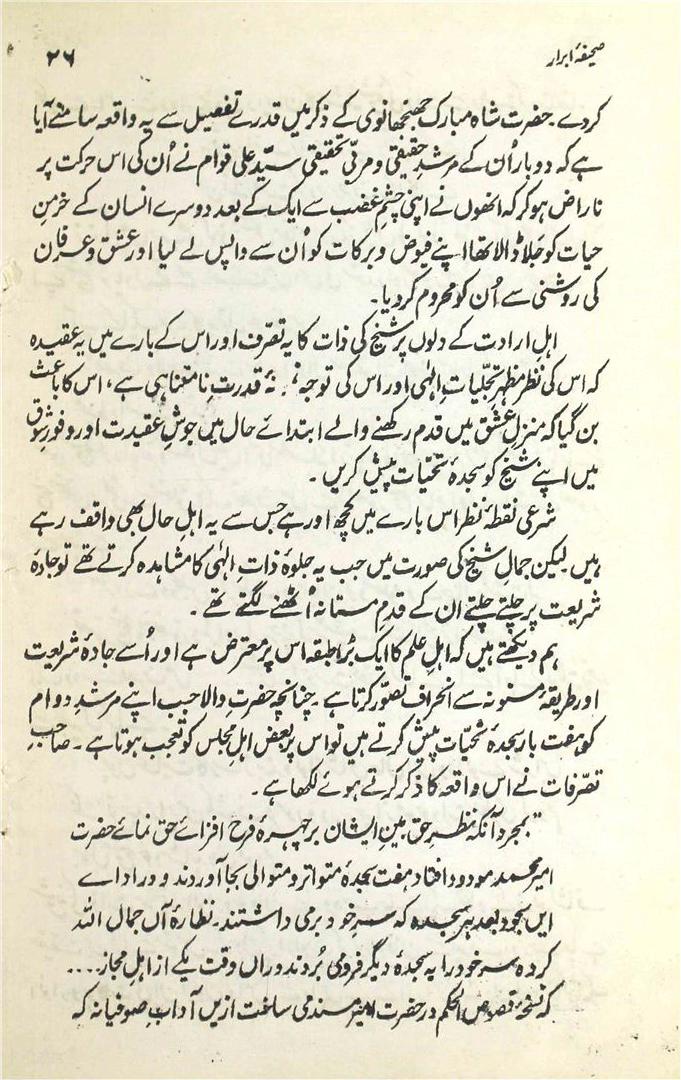 صحیفۂ ابرار
۲۶
کردے۔ حضرت شاہ مبارک جھنجھانوی کے ذکر میں قدرے تفصیل سے یہ واقعہ سامنے آیا
ہے کہ دوبار اُن کے مرشدِ حقیقی و مربّیِ تحقیقی سیّد علی قوام نے اُن کی اس حرکت پر
ناراض ہوکر کہ انھوں نے اپنی چشمِ غضب سے ایک کے بعد دوسرے انسان کے خرمنِ
حیات کو جلا ڈالا تھا اپنے فیوض و برکات کو اُن سے واپس لے لیا اور عشق و عرفان
کی روشنی سے اُن کو محروم کردیا۔
اہلِ ارادت کے دلوں پر شیخ کی ذات کا یہ تصرّف اور اس کے بارے میں یہ عقیدہ
کہ اس کی نظر مظہرِ تجلّیاتِ الٰہی اور اس کی توجہ، قدرتِ نامتناہی ہے، اس کا باعث
بن گیا کہ منزلِ عشق میں قدم رکھنے والے ابتدائے حال میں جوشِ عقیدت اور وفورِ شوق
میں اپنے شیخ کو سجدۂ تحیّات پیش کریں۔
شرعی نقطۂ نظر اس بارے میں کچھ اور ہے جس سے یہ اہلِ حال بھی واقف رہے
ہیں لیکن جمالِ شیخ کی صورت میں جب یہ جلوۂ ذاتِ الٰہی کا مشاہدہ کرتے تھے تو جادۂ
شریعت پر چلتے چلتے ان کے قدم مستانہ اُٹھنے لگتے تھے۔
ہم دیکھتے ہیں کہ اہلِ علم کا ایک بڑا طبقہ اس پر معترض ہے اور اُسے جادۂ شریعت
اور طریقۂ مسنونہ سے انحراف تصوّر کرتا ہے۔ چنانچہ حضرتِ والا جب اپنے مرشدِ دوام
کو ہفت بار سجدۂ تحیّات پیش کرتے ہیں تو اس پر بعض اہلِ مجلس کو تعجب ہوتا ہے۔ صاحبِ
تصرّفات نے اس واقعہ کا ذکر کرتے ہوئے لکھا ہے۔
"بمجرد آنکہ نظرِ حق بین ایشان برچہرۂ فرح افزائے حق نمائے حضرت
امیر محمد مودود افتاد ہفت سجدۂ متواتر و متوالی بجا آوردند و در ادائے
ایں سجود بعد ہر سجدہ کہ سرِ خود برمی داشتند۔ نظارۂ آں جمال اللہ
کردہ سر خود را بہ سجدۂ دیگر فرومی بُردند دراں وقت یکے از اہلِ مجاز....
کہ نسخۂ فصوص الحکم در حضرت امیر سند می ساخت ازیں آدابِ صوفیانہ کہ